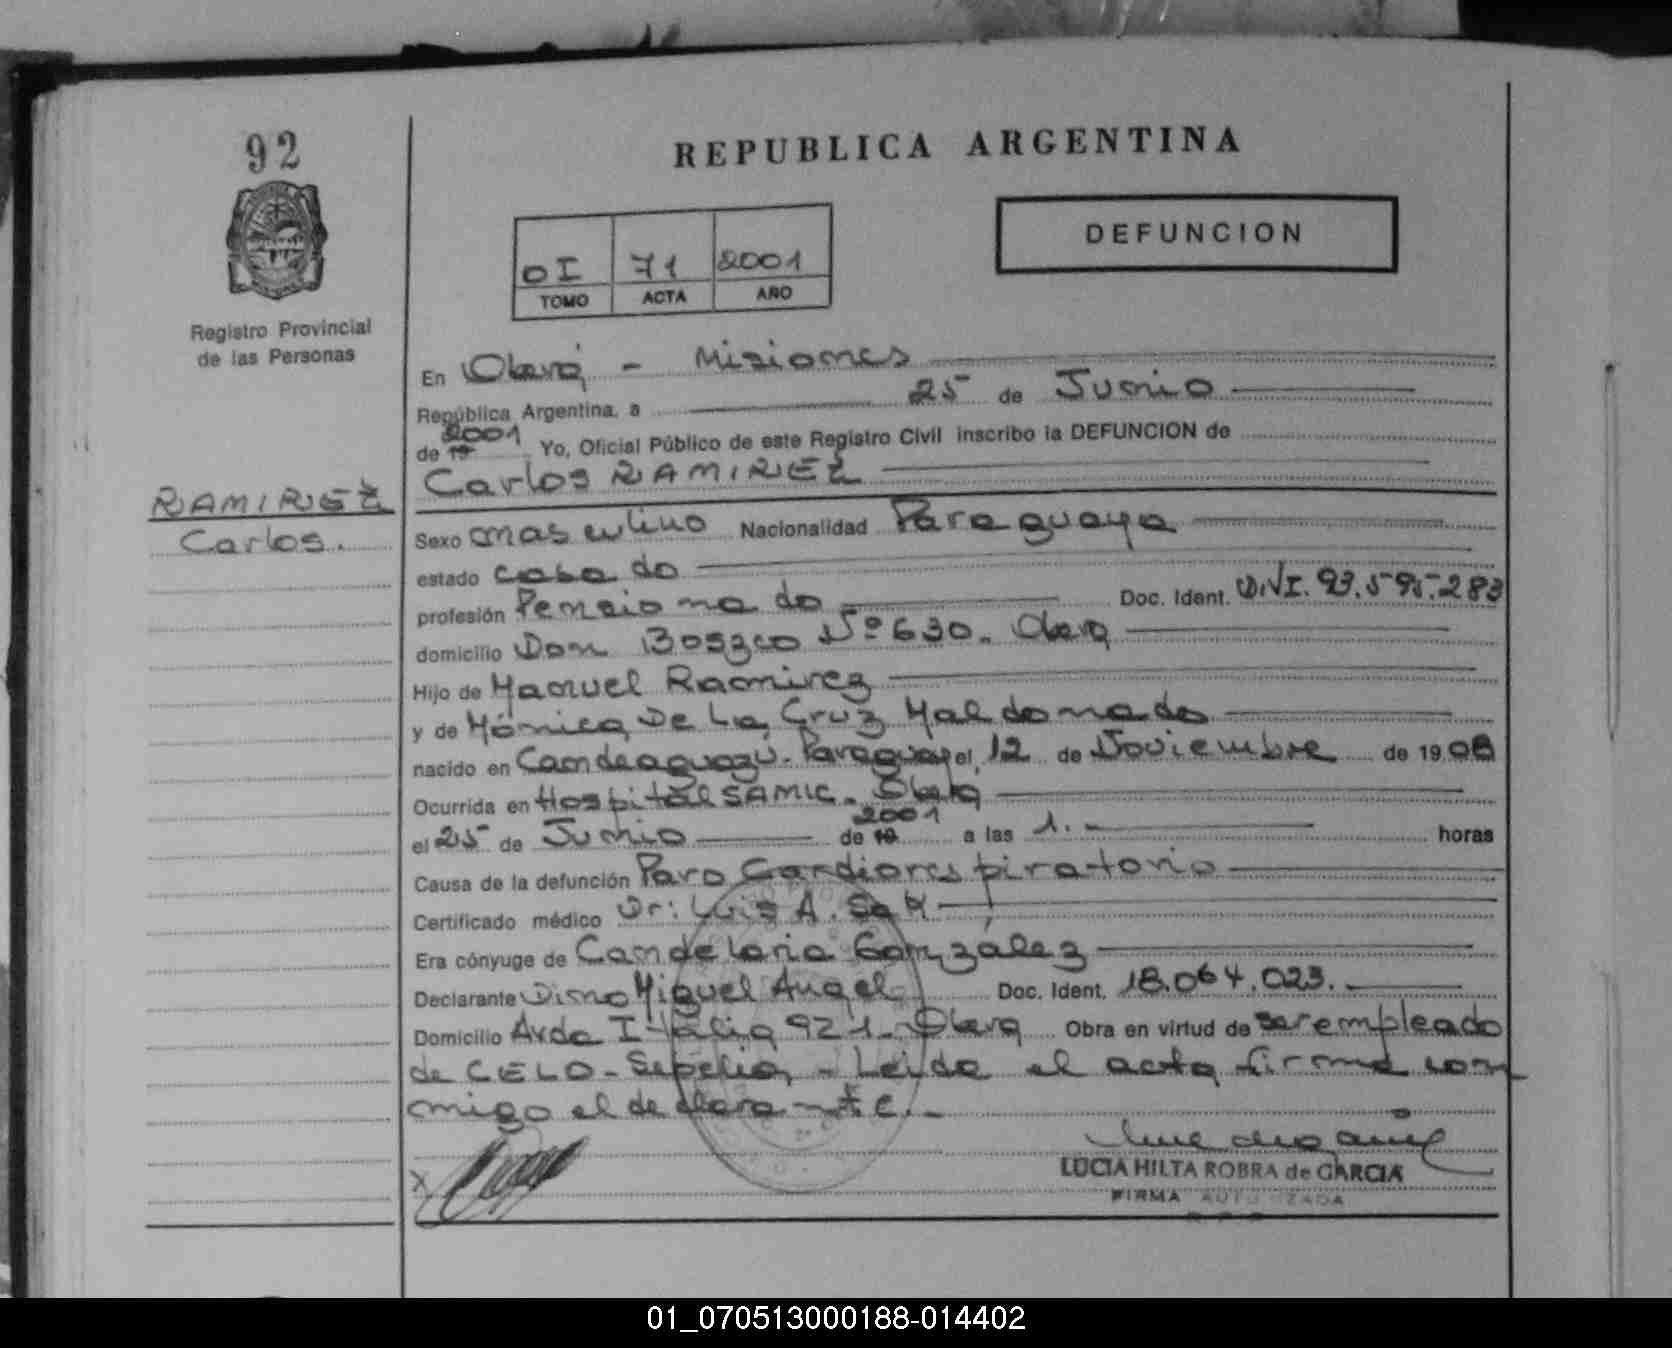 92
REPUBLICA ARGENTINA
DEFUNCION
OI 71 2001
TOMO ACTA AÑO
Registro Provincial
de las Personas
En Oberá - Misiones
República Argentina, a 25 de Junio
de 19 2001 Yo, Oficial Público de este Registro Civil inscribo la DEFUNCION de
Carlos RAMIREZ
RAMIREZ
Carlos.
Sexo masculino Nacionalidad Paraguaya
estado casado
profesión Pensionado Doc. Ident. D.N.I. 93.595.283
domicilio Don Boszco Nº 630. Oberá
Hijo de Manuel Ramirez
y de Mónica De La Cruz Maldonado
nacido en Camdeaguazu. Paraguay el 12 de Noviembre de 1908
Ocurrida en Hospital SAMIC. Oberá
el 25 de Junio de 19 2001 a las 1. horas
Causa de la defunción Paro Cardiorespiratorio
Certificado médico Dr: Luis A.
Era cónyuge de Candelaria González
Declarante Miguel Angel Doc. Ident. 18.064.023.
Domicilio Avda Italia 921. Oberá Obra en virtud de ser empleado
de CELO - Sepelio, - Leida el acta firma con
migo el declara-te.-
X
LUCIA HILTA ROBRA de GARCIA
FIRMA AUTORIZADA
01_070513000188-014402